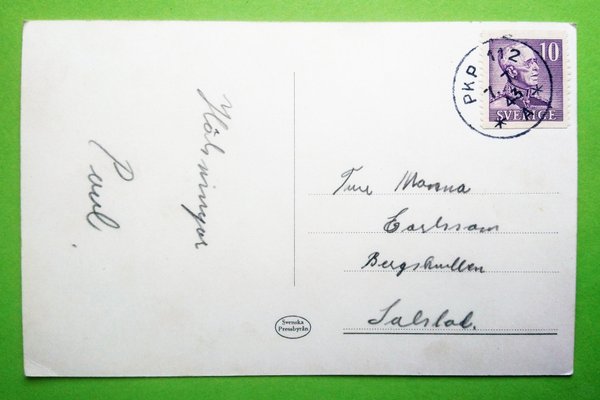 Hälsningar
Paul.
PKP 112
1. 7. 43
* A *
10
SVERIGE
Ture Manna
Carlsson
Bergskullen
Salstad.
Svenska
Pressbyrån